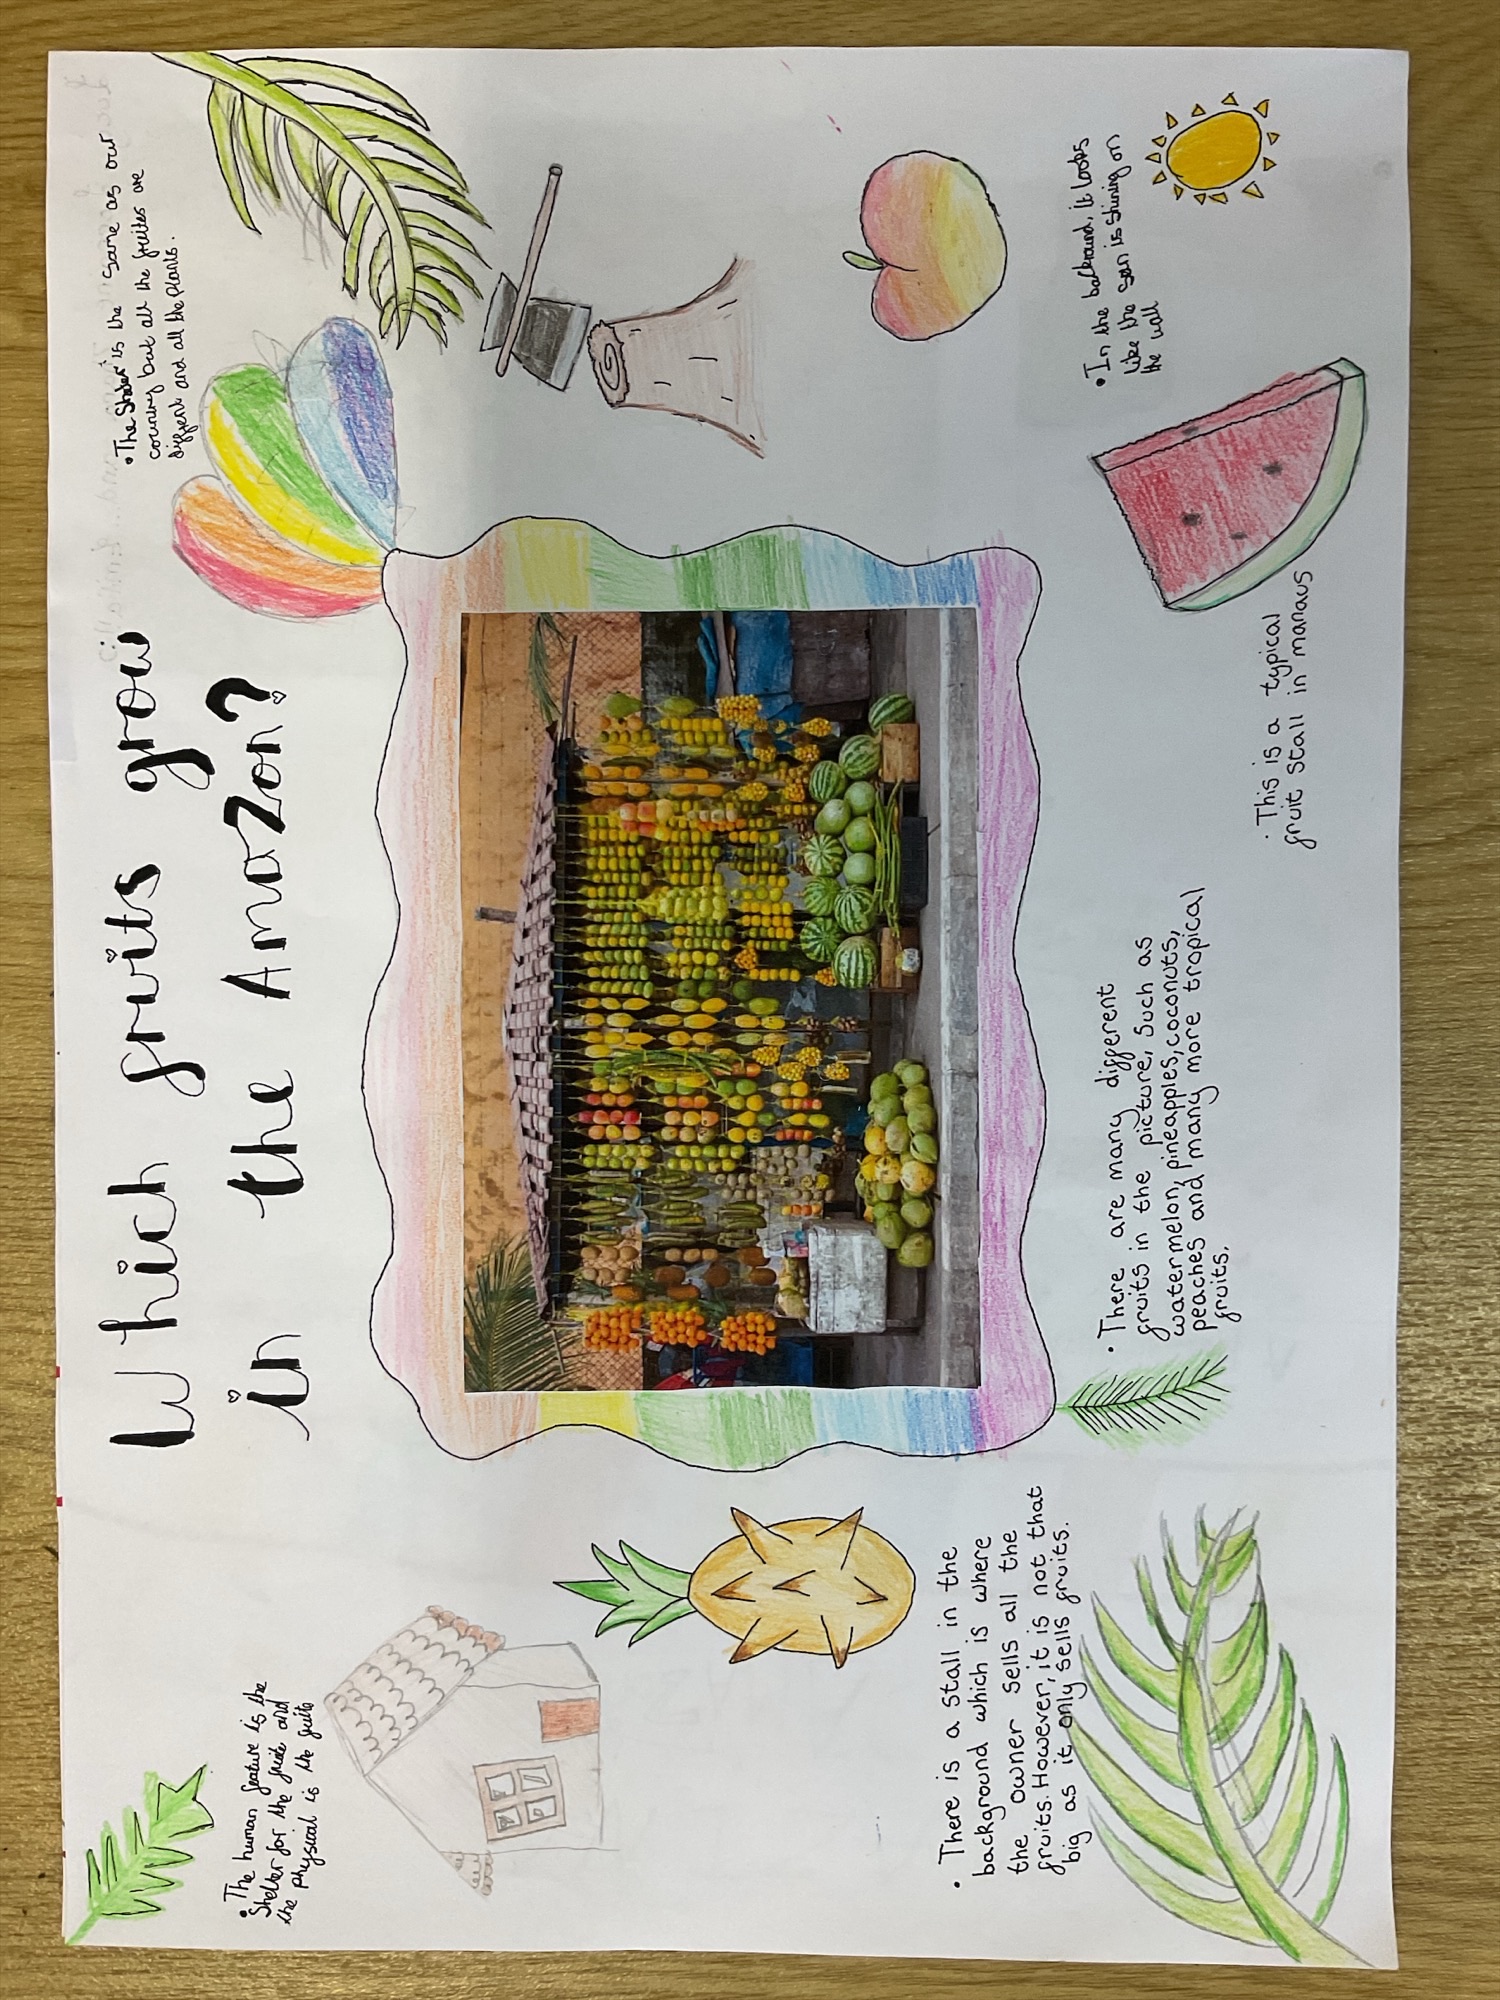 Which fruits grow
in the Amazon?
• The human feature is the
Shelter for the fruite and
the physical is the fruite
• The Shelter is the same as our
country but all the fruites are
different and all the plants.
• In the backround, it looks
like the sun is shining on
the wall
• There is a stall in the
background which is where
the owner sells all the
fruits. However, it is not that
big as it only sells fruits.
• There are many different
fruits in the picture, such as
watermelon, pineapples, coconuts,
peaches and many more tropical
fruits.
• This is a typical
fruit stall in manaus